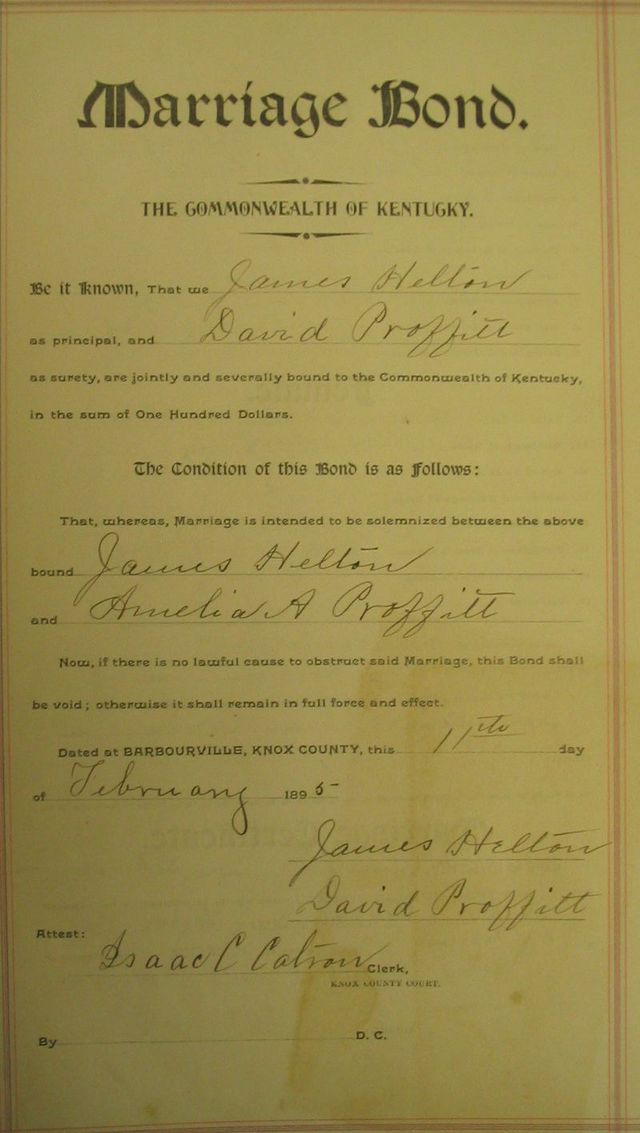 Marriage Bond.
THE COMMONWEALTH OF KENTUCKY.
Be it Known, That we James Helton
as principal, and David Proffitt
as surety, are jointly and severally bound to the Commonwealth of Kentucky,
in the sum of One Hundred Dollars.
The Condition of this Bond is as Follows:
That, whereas, Marriage is intended to be solemnized between the above
bound James Helton
and Amelia A Proffitt
Now, if there is no lawful cause to obstruct said Marriage, this Bond shall
be void; otherwise it shall remain in full force and effect.
Dated at BARBOURVILLE, KNOX COUNTY, this 11th day
of February 1895
James Helton
David Proffitt
Attest:
Isaac C Catron Clerk,
KNOX COUNTY COURT.
By D. C.